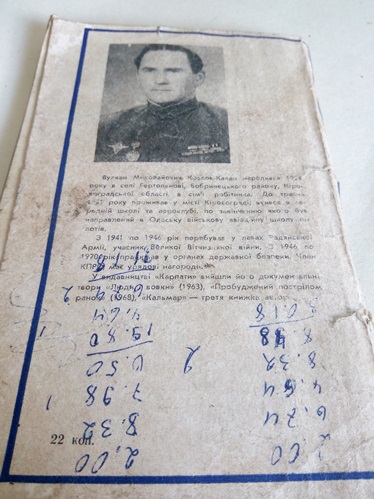 Вулкан Миколайович народився
року в селі Бобринецького району, Кіро-
воградської області, в сім'ї робітника. До травня
1941 року проживав у місті Кіровограді, учився в се-
редній школі та аероклубі, по закінченню якого був
направлений в Одеську військову авіаційну школу пі-
лотів.
З 1941 по 1946 рік перебував у лавах Радянської
Армії, учасник Великої Вітчизняної війни. З 1946 по
1970 рік працював у органах державної безпеки. Член
КПРС, має урядові нагороди.
У видавництві «Карпати» вийшли його документальні
твори (1963), «Пробуджений пострілом
ранок» (1968), «Кальмар» — третя книжка автора.
22 коп.
2,00
8.32
7.98
0.50
2.00
6.74
4.64
8.32
8.48
30.18